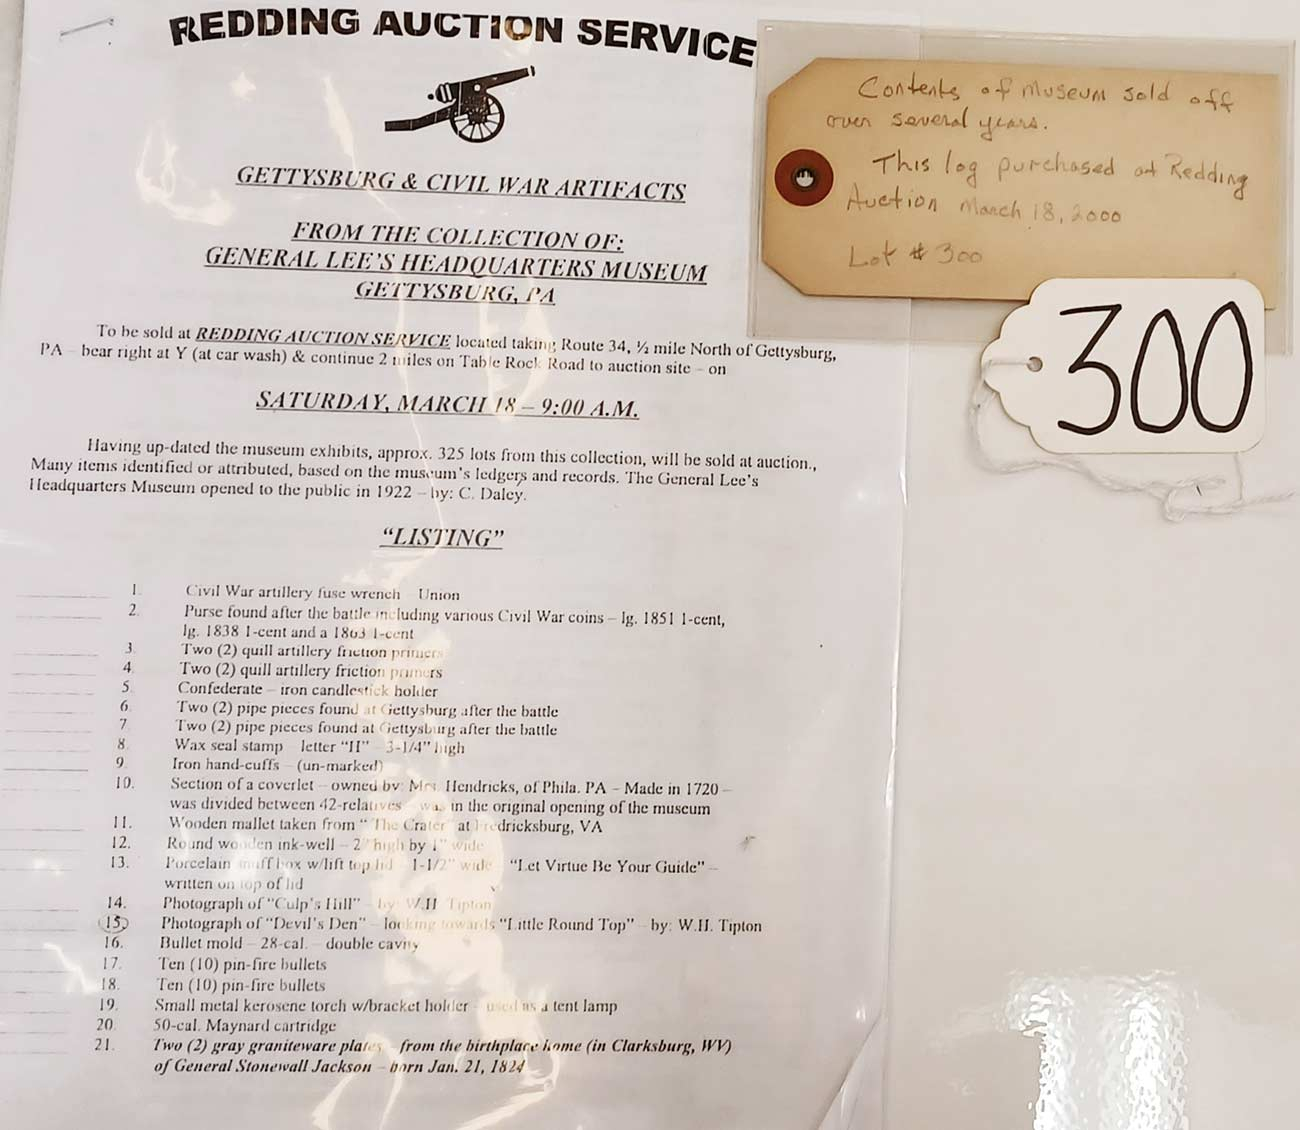 REDDING AUCTION SERVICE
GETTYSBURG & CIVIL WAR ARTIFACTS
FROM THE COLLECTION OF:
GENERAL LEE'S HEADQUARTERS MUSEUM
GETTYSBURG, PA
To be sold at REDDING AUCTION SERVICE located taking Route 34, ½ mile North of Gettysburg,
PA – bear right at Y (at car wash) & continue 2 miles on Table Rock Road to auction site – on
SATURDAY, MARCH 18 – 9:00 A.M.
Having up-dated the museum exhibits, approx. 325 lots from this collection, will be sold at auction.,
Many items identified or attributed, based on the museum's ledgers and records. The General Lee's
Headquarters Museum opened to the public in 1922 – by: C. Daley.
"LISTING"
1. Civil War artillery fuse wrench – Union
2. Purse found after the battle including various Civil War coins – lg. 1851 1-cent,
lg. 1838 1-cent and a 1863 1-cent
3. Two (2) quill artillery friction primers
4. Two (2) quill artillery friction primers
5. Confederate – iron candlestick holder
6. Two (2) pipe pieces found at Gettysburg after the battle
7. Two (2) pipe pieces found at Gettysburg after the battle
8. Wax seal stamp – letter "H" – 3-1/4" high
9. Iron hand-cuffs – (un-marked)
10. Section of a coverlet – owned by: Mrs. Hendricks, of Phila. PA – Made in 1720 –
was divided between 42-relatives – was in the original opening of the museum
11. Wooden mallet taken from "The Crater" at Fredricksburg, VA
12. Round wooden ink-well – 2" high by 1" wide
13. Porcelain snuff box w/lift top lid – 1-1/2" wide – "Let Virtue Be Your Guide" –
written on top of lid
14. Photograph of "Culp's Hill" – by: W.H. Tipton
15. Photograph of "Devil's Den" – looking towards "Little Round Top" – by: W.H. Tipton
16. Bullet mold – 28-cal. – double cavity
17. Ten (10) pin-fire bullets
18. Ten (10) pin-fire bullets
19. Small metal kerosene torch w/bracket holder – used as a tent lamp
20. 50-cal. Maynard cartridge
21. Two (2) gray graniteware plates – from the birthplace home (in Clarksburg, WV)
of General Stonewall Jackson – born Jan. 21, 1824
Contents of Museum sold off
over several years.
This log purchased at Redding
Auction March 18, 2000
Lot # 300
300